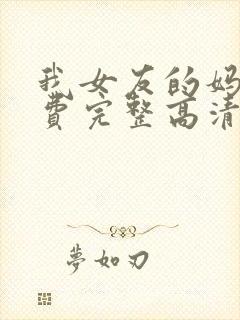 我女友的妈
费完整高清
夢如刃